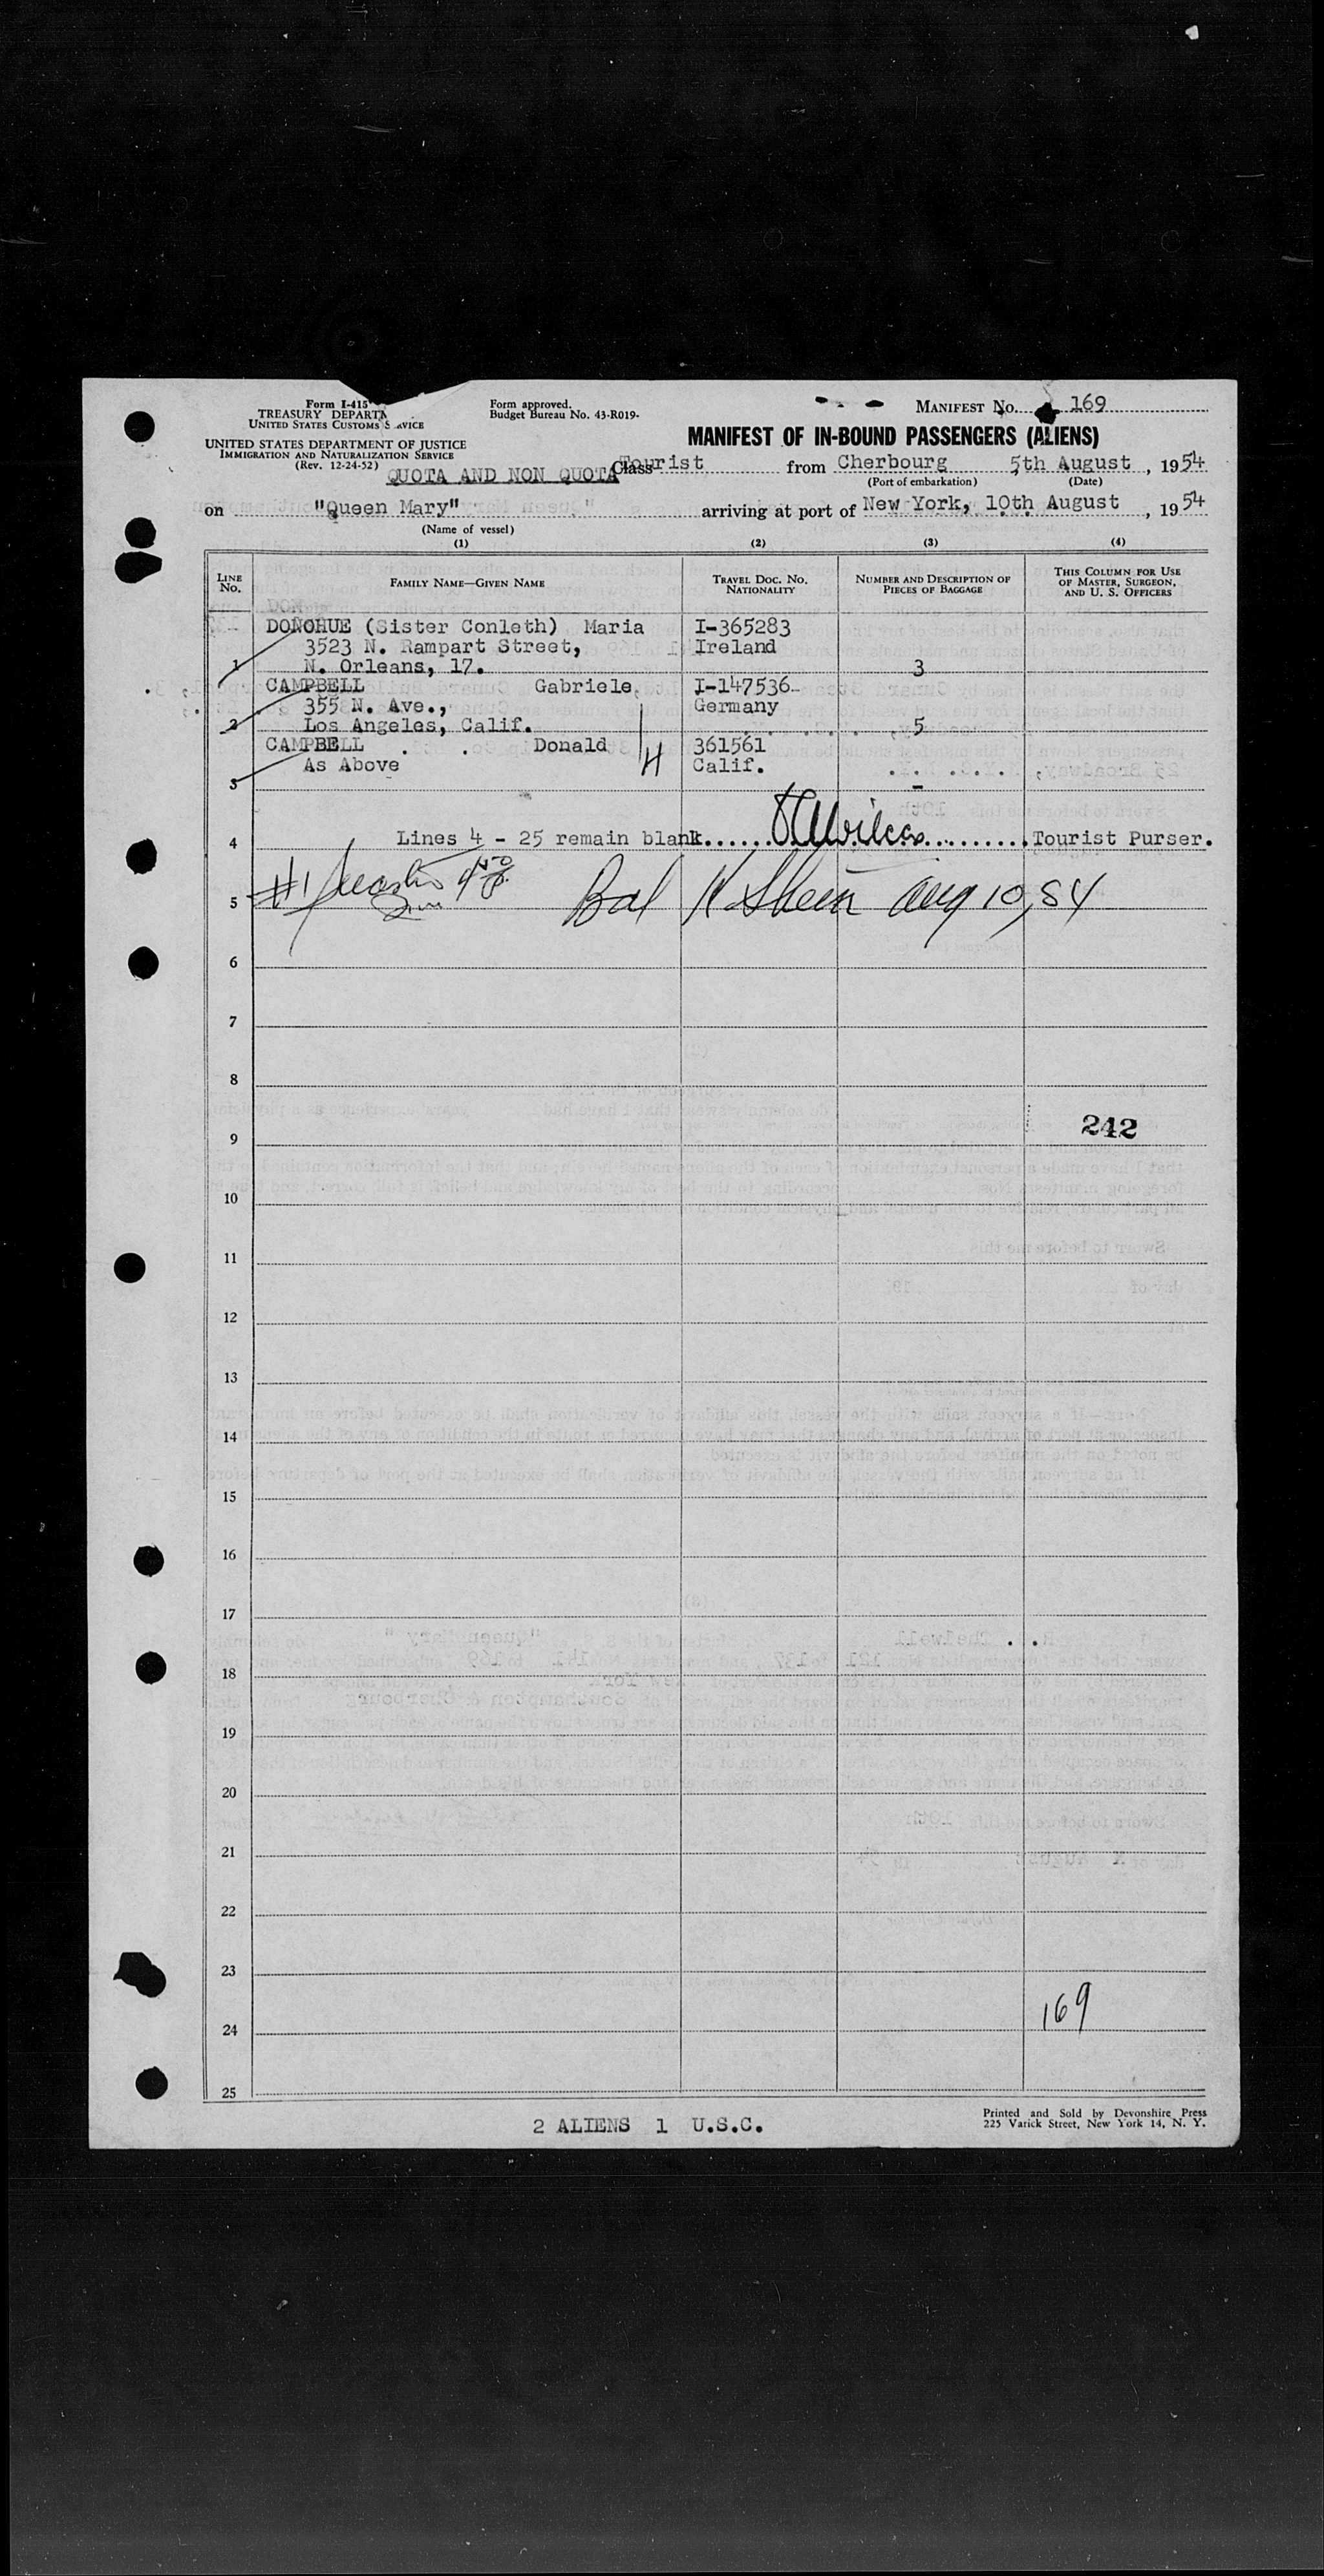 Form I-415
TREASURY DEPARTM
UNITED STATES CUSTOMS S AVICE
UNITED STATES DEPARTMENT OF JUSTICE
IMMIGRATION AND NATURALIZATION SERVICE
(Rev. 12-24-52)
Form approved.
Budget Bureau No. 43-R019-
MANIFEST No. 169
MANIFEST OF IN-BOUND PASSENGERS (ALIENS)
QUOTA AND NON QUOTA Class Tourist from Cherbourg 5th August, 1954
(Port of embarkation) (Date)
on "Queen Mary" arriving at port of New York, 10th August, 1954
(Name of vessel)
(1) (2) (3) (4)
LINE No. FAMILY NAME—GIVEN NAME TRAVEL DOC. No. NATIONALITY NUMBER AND DESCRIPTION OF PIECES OF BAGGAGE THIS COLUMN FOR USE OF MASTER, SURGEON, AND U. S. OFFICERS
DONOHUE (Sister Conleth) Maria I-365283
3523 N. Rampart Street, Ireland
1 N. Orleans, 17. 3
CAMPBELL Gabriele I-147536
355 N. Ave., Germany
2 Los Angeles, Calif. 5
CAMPBELL Donald 361561
As Above H Calif.
3 -
4 Lines 4 - 25 remain blank Tourist Purser.
5 #1 Aug 10, 54
6
7
8
242
9
10
11
12
13
14
15
16
17
18
19
20
21
22
23
169
24
25
2 ALIENS 1 U.S.C.
Printed and Sold by Devonshire Press
225 Varick Street, New York 14, N. Y.